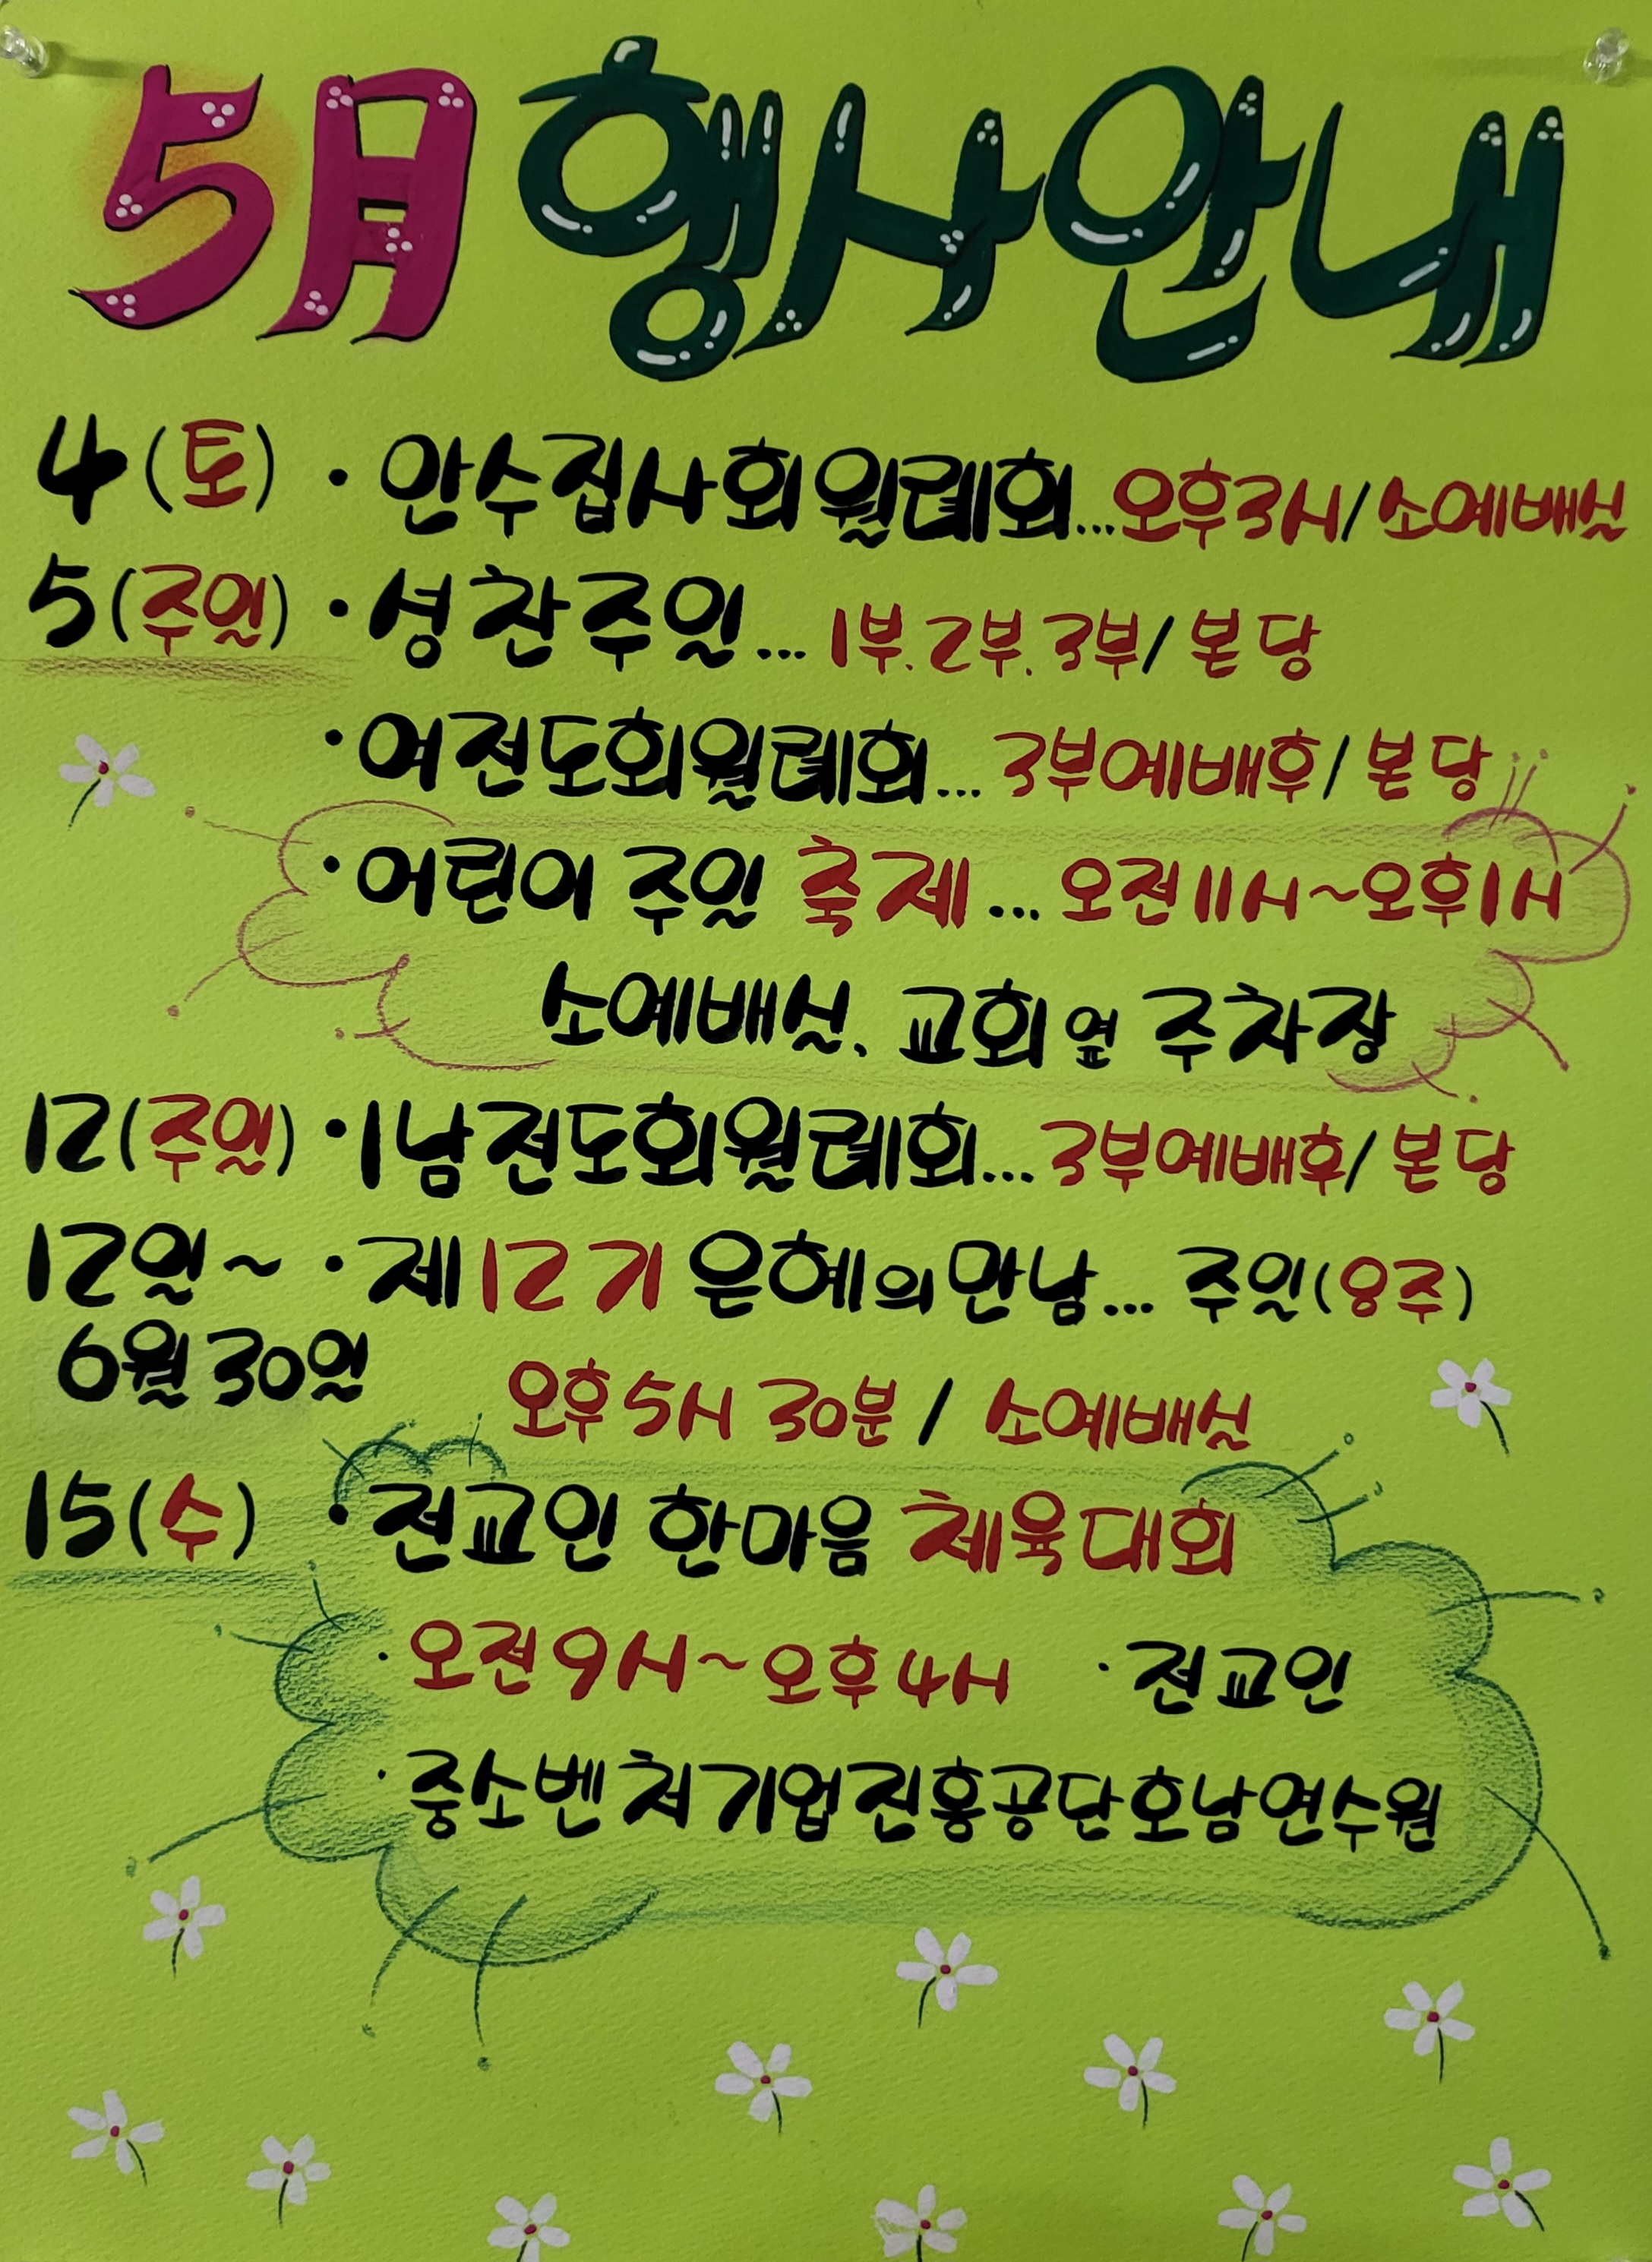 5月 행사안내
4(토) · 안수집사회월례회...오후3시/소예배실
5(주일) · 성찬주일... 1부.2부.3부/본당
· 여전도회월례회... 3부예배후/본당
· 어린이 주일 축제... 오전11시~오후1시
소예배실, 교회 옆 주차장
12(주일) · 1남전도회월례회...3부예배후/본당
12일~ · 제12기 은혜의 만남... 주일(8주)
6월30일 오후5시 30분 / 소예배실
15(수) · 전교인 한마음 체육대회
· 오전9시~오후4시 · 전교인
· 중소벤처기업진흥공단호남연수원